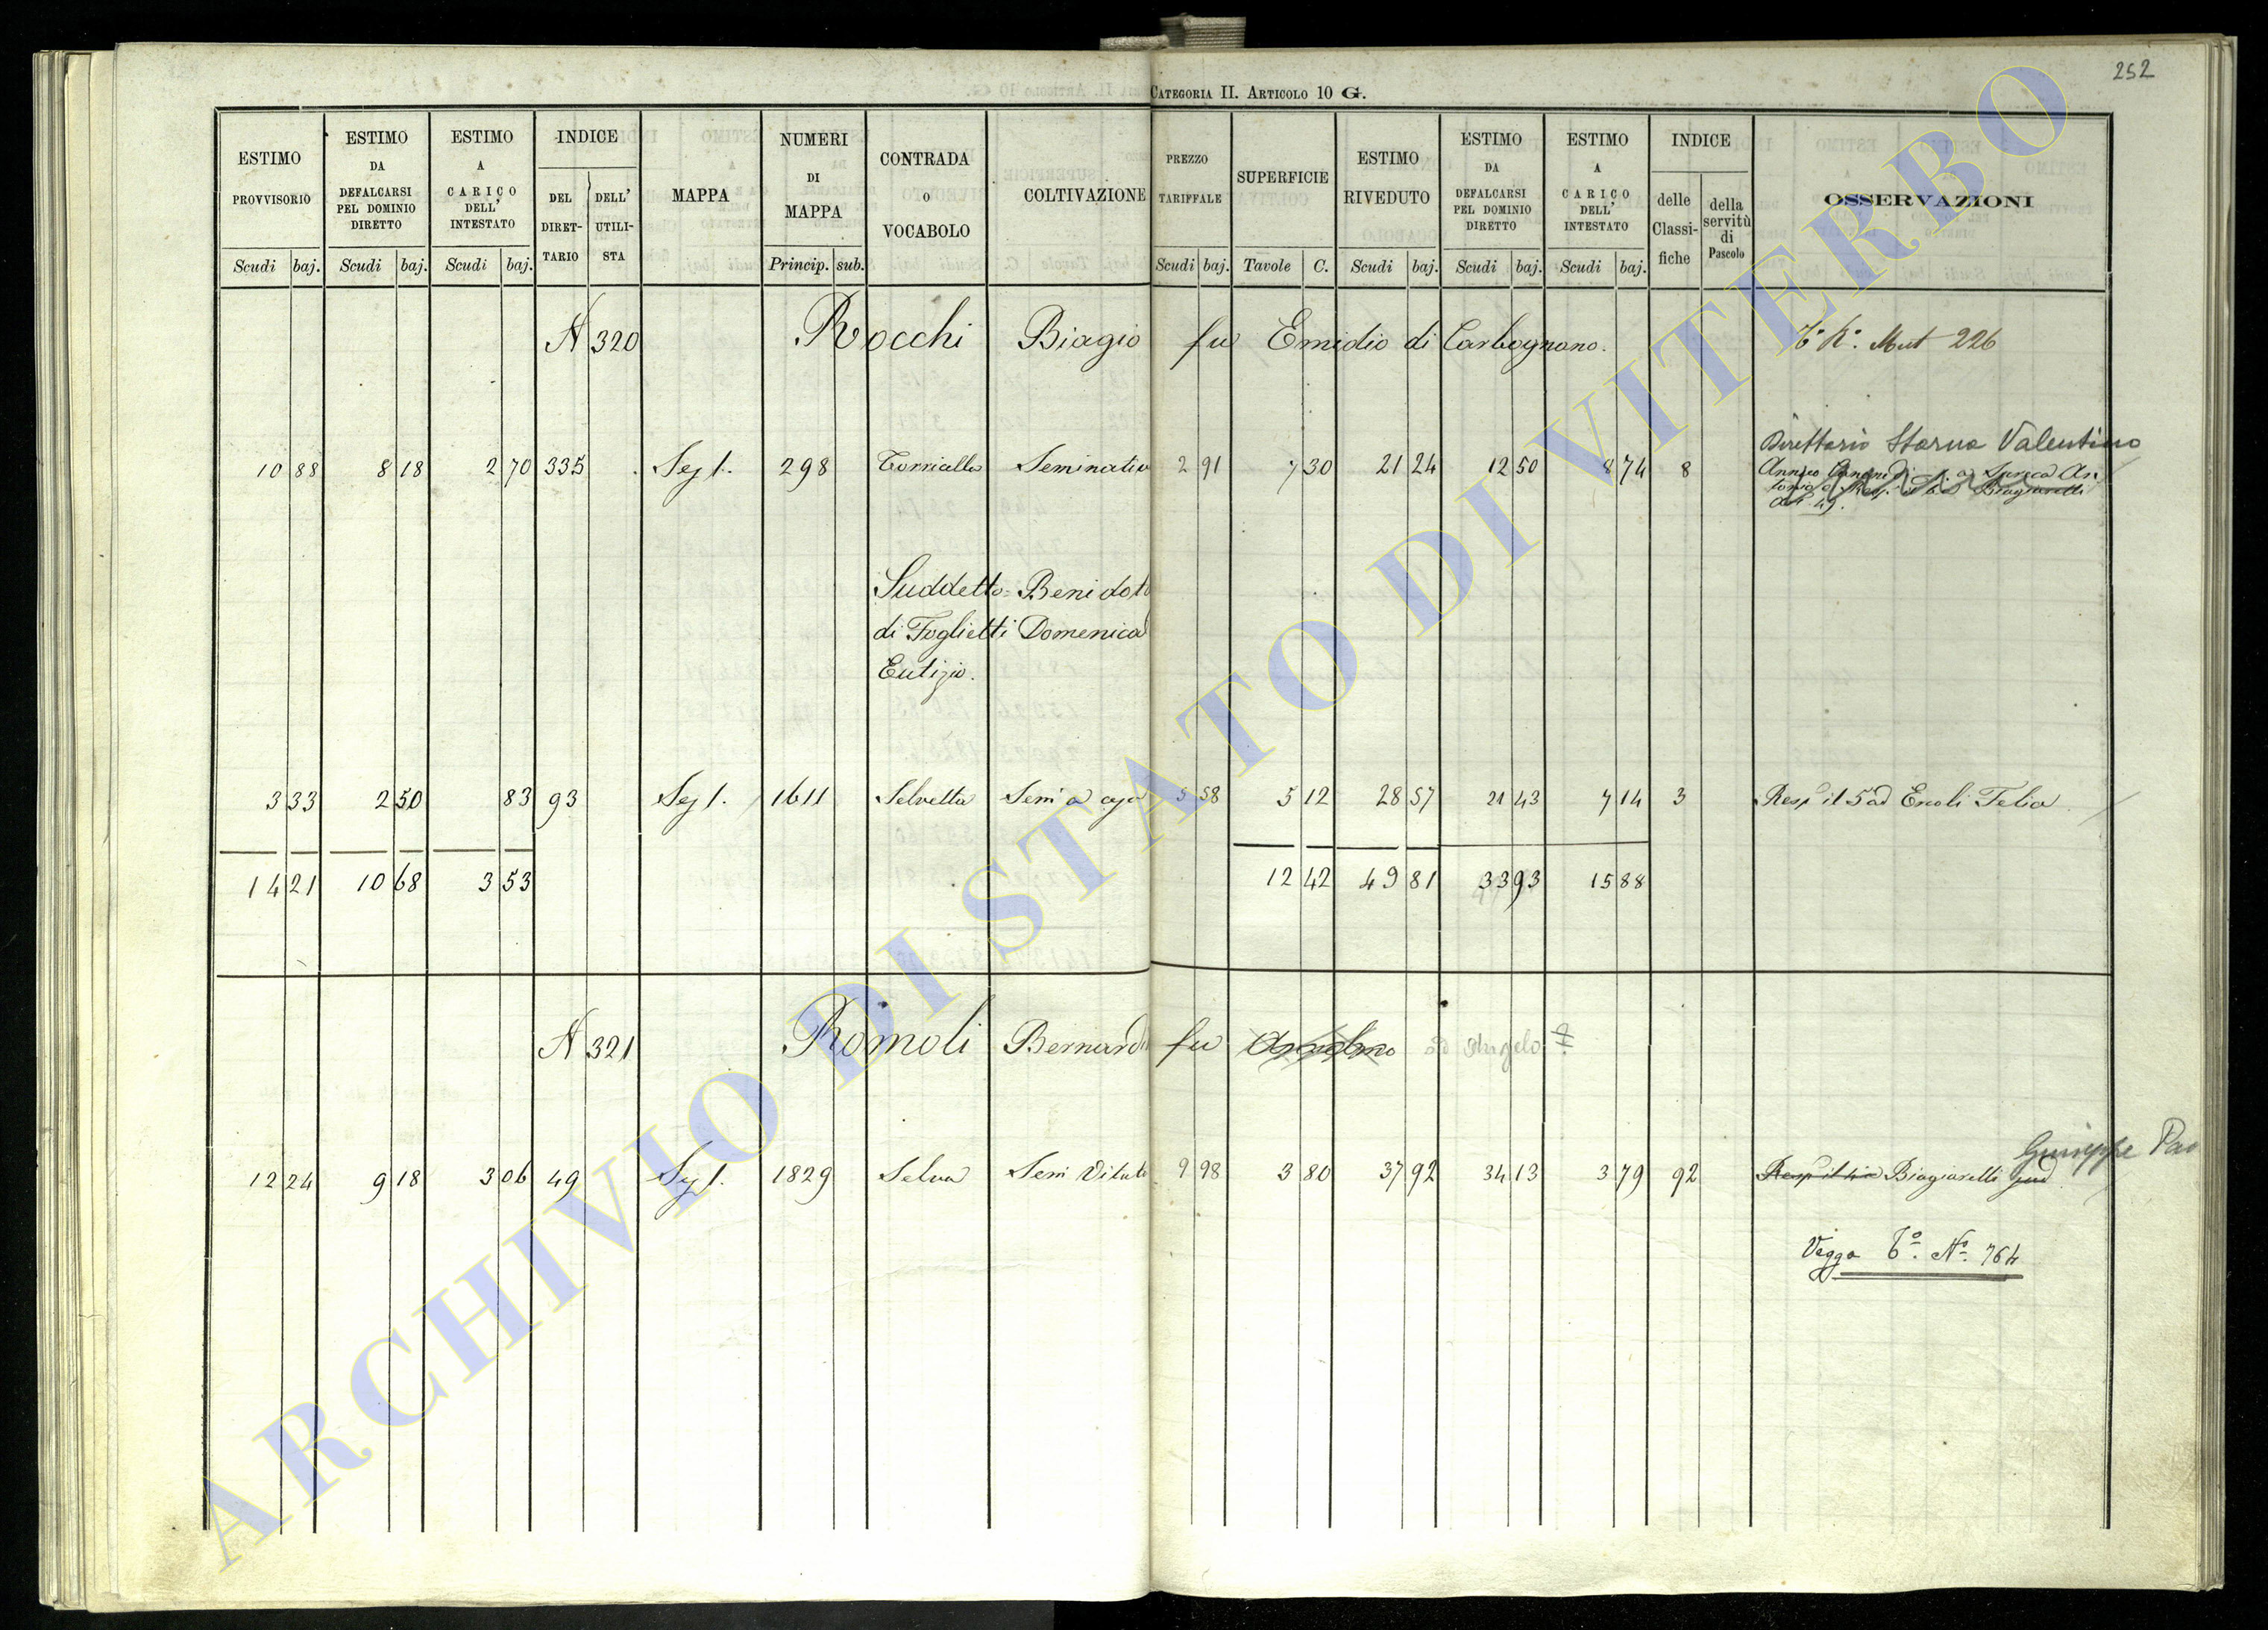 252
CATEGORIA II. ARTICOLO 10 G.
ESTIMO PROVVISORIO
ESTIMO DA DEFALCARSI PEL DOMINIO DIRETTO
ESTIMO A CARICO DELL' INTESTATO
INDICE
DEL DIRET-TARIO
DELL' UTILI-STA
MAPPA
NUMERI DI MAPPA
CONTRADA O VOCABOLO
COLTIVAZIONE
PREZZO TARIFFALE
SUPERFICIE
ESTIMO RIVEDUTO
ESTIMO DA DEFALCARSI PEL DOMINIO DIRETTO
ESTIMO A CARICO DELL' INTESTATO
INDICE
delle Classi-fiche
della servitù di Pascolo
OSSERVAZIONI
Scudi baj. Scudi baj. Scudi baj. Princip. sub. Scudi baj. Tavole C. Scudi baj. Scudi baj. Scudi baj.
N 320 Rocchi Biagio fu Emidio di Carbognano. Mut 226
Direttario Starna Valentino
10 88 8 18 2 70 335 Sez 1. 298 Torricella Seminativo 2 91 7 30 21 24 12 50 8 74 8
Art. 49.
Suddetto = Beni dot
di Foglietti Domenica
Eutizio.
3 33 2 50 83 93 Sez 1. 1611 Selvetta Sem 5 58 5 12 28 57 21 43 7 14 3 Resp il 5 ad Ercoli Telia
14 21 10 68 3 53 12 42 49 81 33 93 15 88
N 321 Romoli Bernard fu Anselmo Angelo
Giuseppe
12 24 9 18 3 06 49 Sez 1. 1829 Selva Sem Vitato 9 98 3 80 37 92 34 13 3 79 92 Resp il Biagiarelli
Vegga T.º N.º 764
ARCHIVIO DI STATO DI VITERBO